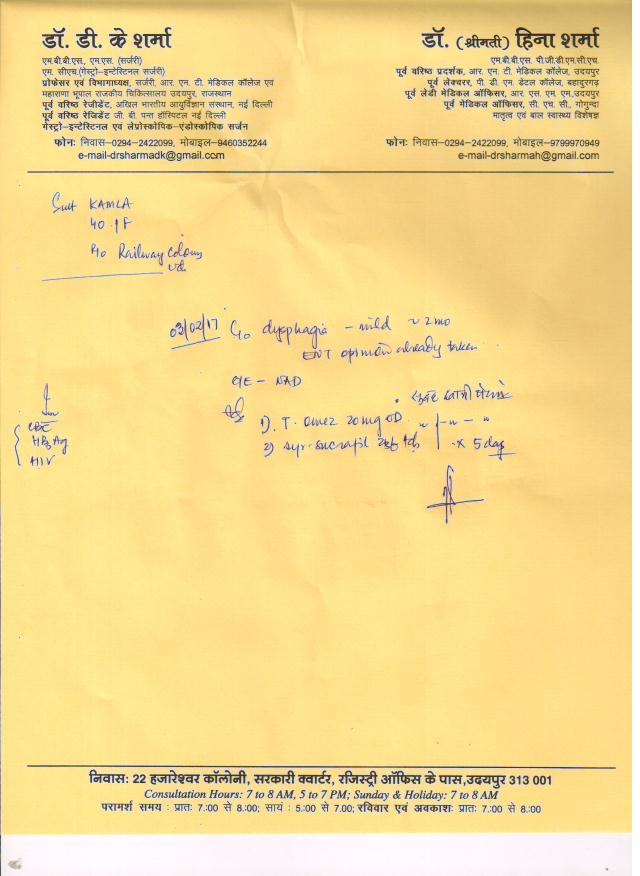 डॉ. डी. के शर्मा
एम.बी.बी.एस., एम.एस. (सर्जरी)
एम. सीएच.(गेस्ट्रो–इन्टेस्टिनल सर्जरी)
प्रोफेसर एवं विभागाध्यक्ष, सर्जरी, आर. एन. टी. मेडिकल कॉलेज एवं
महाराणा भूपाल राजकीय चिकित्सालय उदयपुर, राजस्थान
पूर्व वरिष्ठ रेजीडेंट, अखिल भारतीय आयुर्विज्ञान संस्थान, नई दिल्ली
पूर्व वरिष्ठ रेजिडेंट जी. बी. पन्त हॉस्पिटल नई दिल्ली
गेस्ट्रो–इन्टेस्टिनल एवं लेप्रोस्कोपिक–एंडोस्कोपिक सर्जन
फोनः निवास–0294-2422099, मोबाइल–9460352244
e-mail-drsharmadk@gmail.com
डॉ. (श्रीमती) हिना शर्मा
एम.बी.बी.एस. पी.जी.डी.एम.सी.एच.
पूर्व वरिष्ठ प्रदर्शक, आर. एन. टी. मेडिकल कॉलेज, उदयपुर
पूर्व लेक्चरर, पी. डी. एम. डेंटल कॉलेज, बहादुरगढ़
पूर्व लेडी मेडिकल ऑफिसर, आर. एस. एम. एम.,उदयपुर
पूर्व मेडिकल ऑफिसर, सी. एच. सी., गोगुन्दा
मातृत्व एवं बाल स्वास्थ्य विशेषज्ञ
फोनः निवास–0294-2422099, मोबाइल–9799970949
e-mail-drsharmah@gmail.com
Smt KAMLA
40 / F
R/o Railway Colony
03/02/17 C/o dysphagia – mild ~ 2mo
ENT opinion already taken
O/E – NAD
1). T. Omez 20 mg OD
2) Syr. Sucrafil x 5 day
CBC
HBsAg
HIV
निवास: 22 हजारेश्वर कॉलोनी, सरकारी क्वार्टर, रजिस्ट्री ऑफिस के पास,उदयपुर 313 001
Consultation Hours: 7 to 8 AM, 5 to 7 PM; Sunday & Holiday: 7 to 8 AM
परामर्श समय : प्रातः 7:00 से 8:00; सायं : 5:00 से 7.00; रविवार एवं अवकाशः प्रातः 7.:00 से 8:00